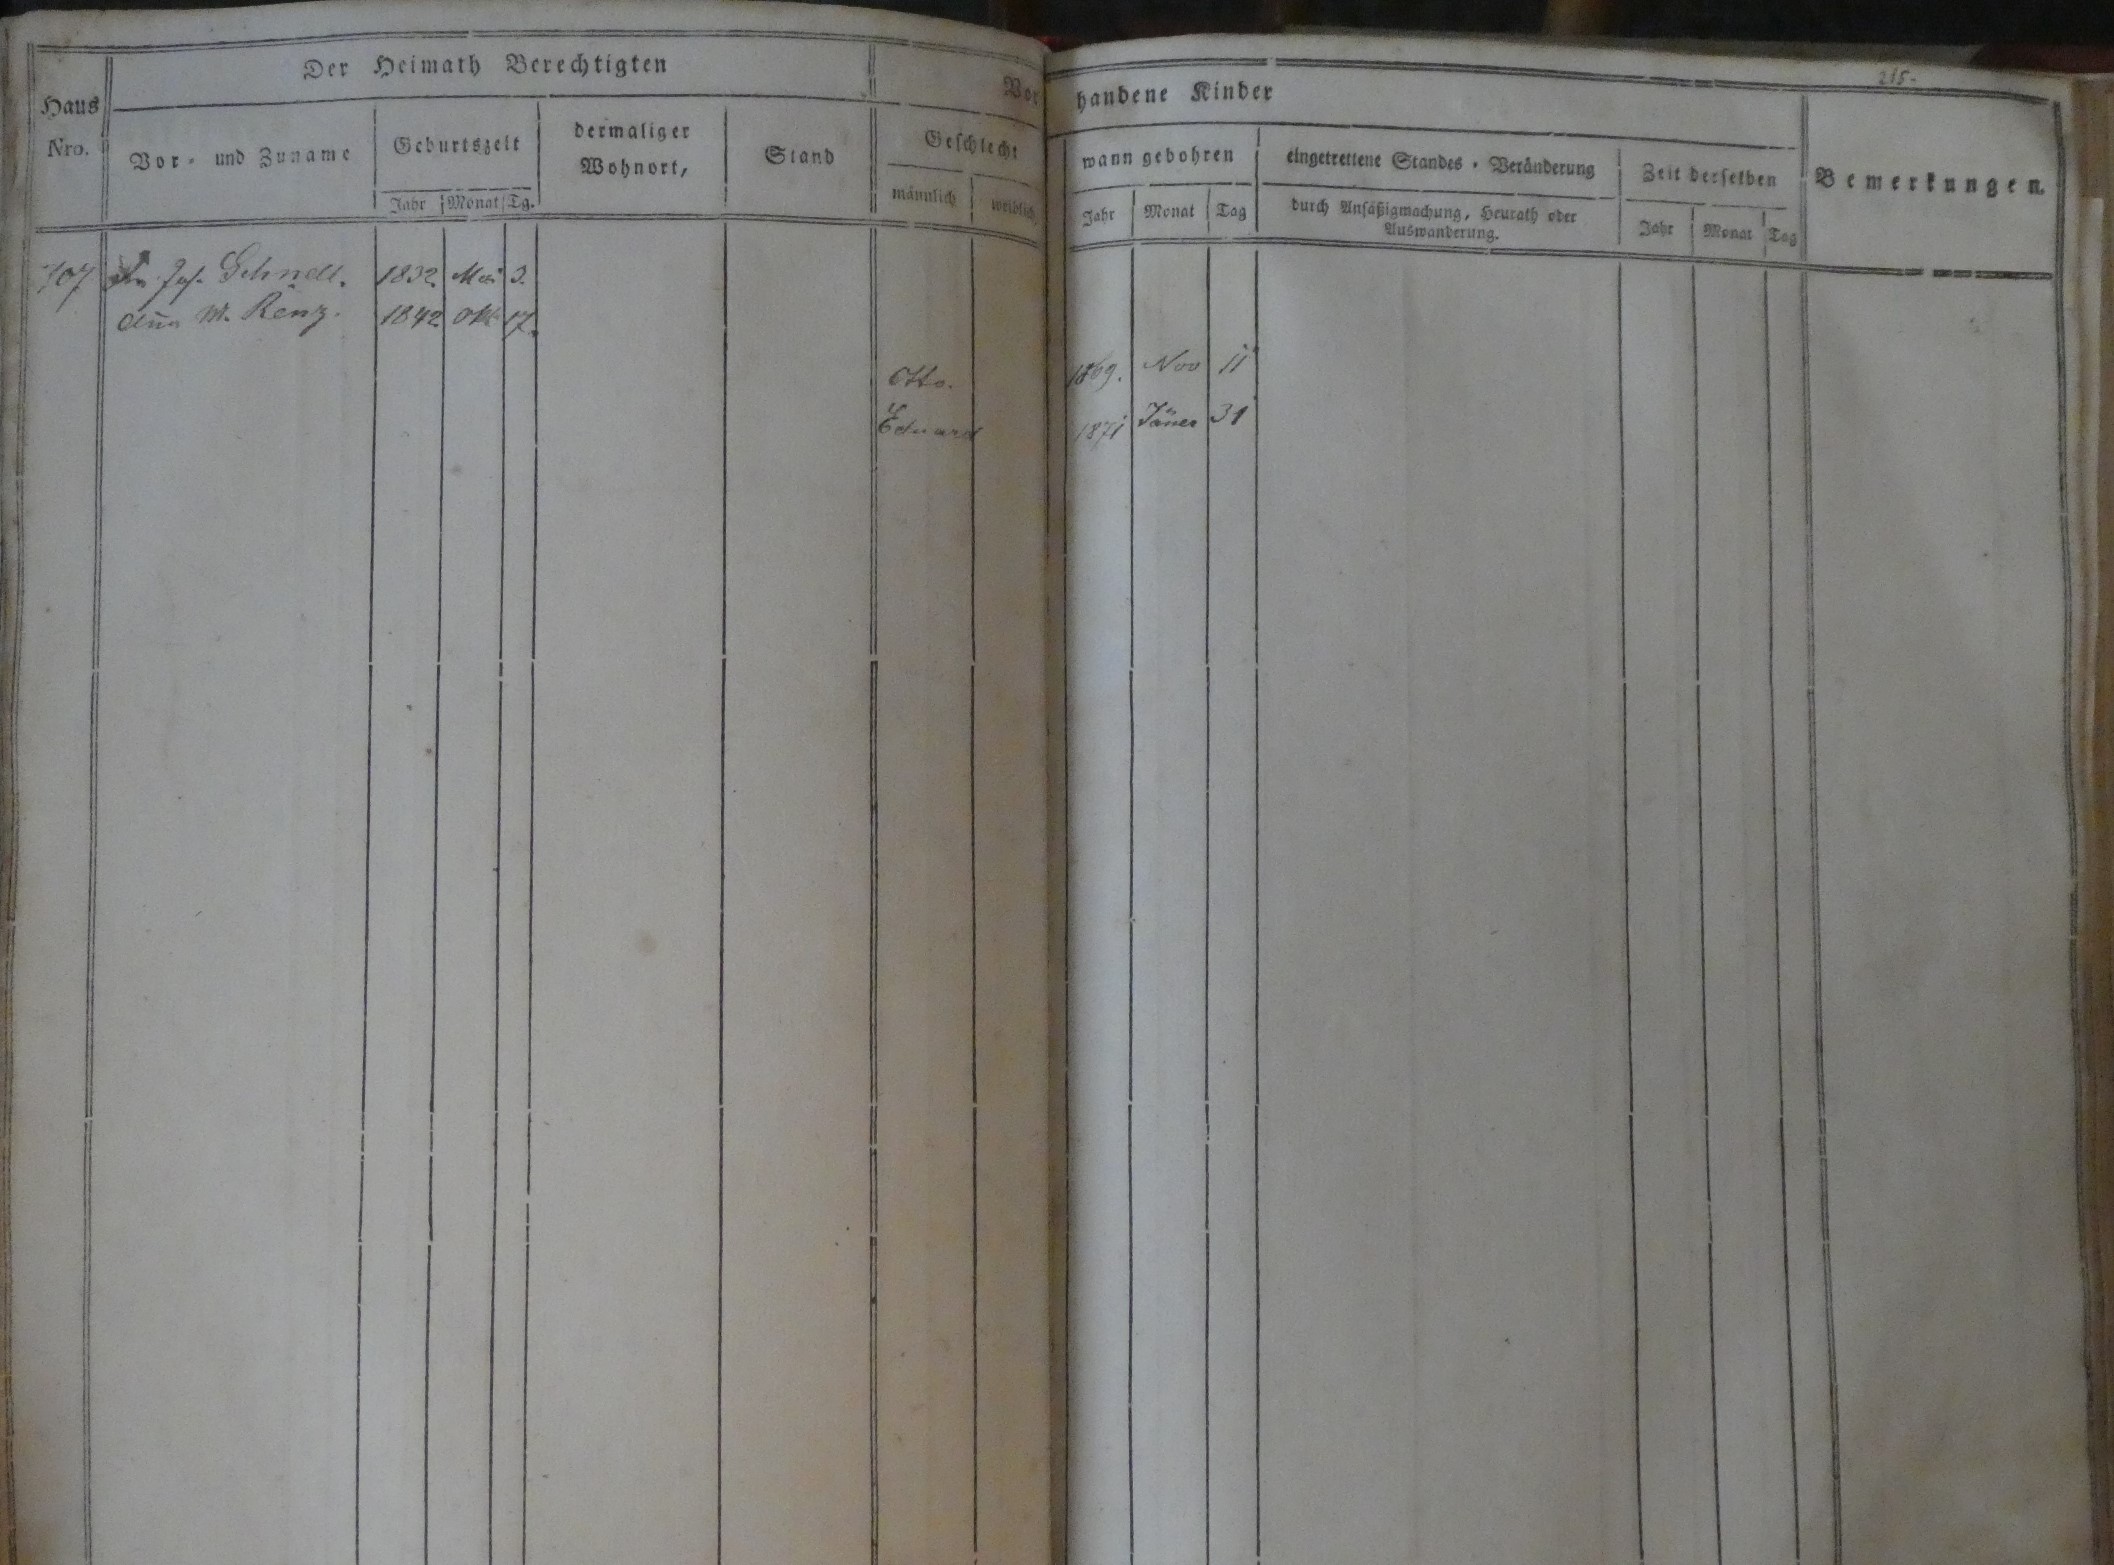 215.
Der Heimath Berechtigten
Vorhandene Kinder
Haus Nro.
Vor- und Zuname
Geburtszeit
dermaliger Wohnort,
Stand
Geschlecht
wann gebohren
eingetrettene Standes-Veränderung
Zeit derselben
Bemerkungen.
Jahr Monat Tg.
männlich weiblich
Jahr Monat Tag
durch Ansäßigmachung, Heurath oder
Auswanderung.
Jahr Monat Tag
107 Jos. Schnell. 1832 Mai 3.
Aña M. Renz. 1842 Okt 17.
Otto. 1869. Nov 11
Eduard 1871 Jäner 31